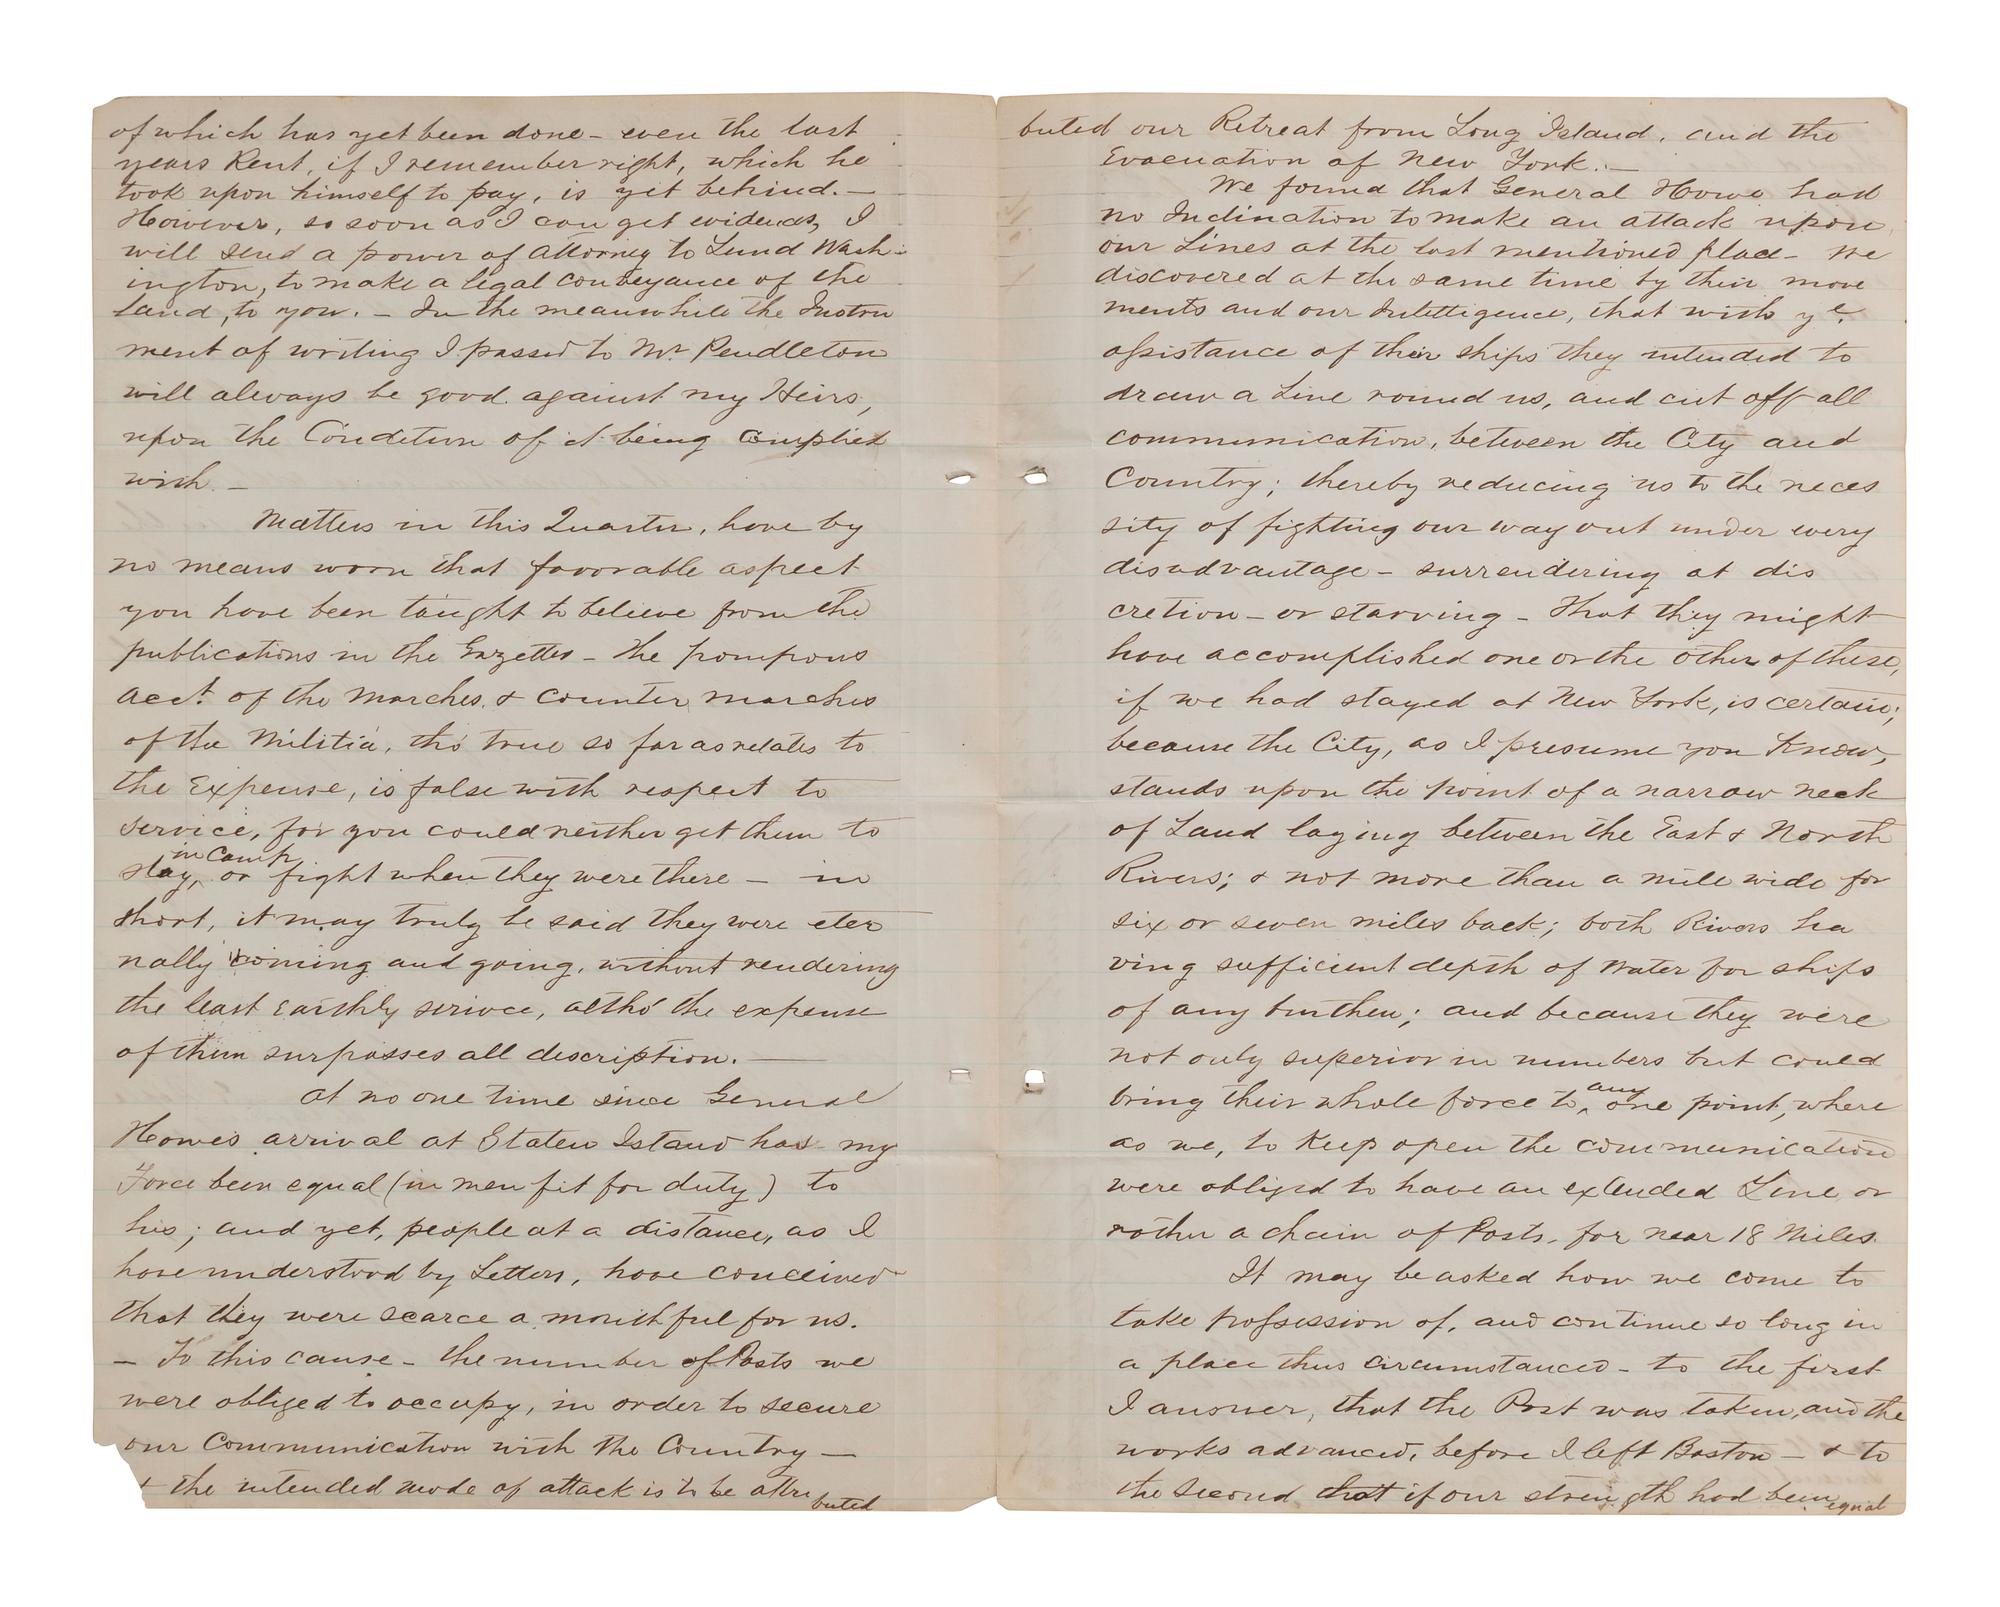 of which has yet been done - even the last
years Rent, if I remember right, which he
took upon himself to pay, is yet behind. —
However, so soon as I can get evidences, I
will send a power of Attorney to Lund Wash-
ington, to make a legal conveyance of the
land, to you. - In the meanwhile the Instru
ment of writing I passed to Mr. Pendleton
will always be good against my Heirs,
upon the Condition of it being complied
with. —
Matters in this Quarter, have by
no means worn that favorable aspect
you have been taught to believe from the
publications in the Gazettes - The pompous
acct. of the Marches, & counter marches
of the Militia, tho' true so far as relates to
the Expense, is false with respect to
service, for you could neither get them to
in Camp
stay, or fight when they were there — in
short, it may truly be said they were eter
nally coming and going, without rendering
the least Earthly serivce, altho' the expense
of them surpasses all description. —
At no one time since General
Howe's arrival at Staten Island has my
Force been equal (in men fit for duty) to
his; and yet, people at a distance, as I
have understood by Letters, have conceived
that they were scarce a mouthful for us.
— To this cause - the number of Posts we
were obliged to occupy, in order to secure
our Communication with the Country —
& the intended mode of attack is to be attri
buted
buted our Retreat from Long Island, and the
Evacuation of New York. —
We found that General Howe had
no Inclination to make an attack upon
our Lines at the last mentioned place - We
discovered at the same time by their move
ments and our Intelligence, that with ye.
assistance of their ships they intended to
draw a Line round us, and cut off all
communication, between the City and
Country; thereby reducing us to the neces
sity of fighting our way out under every
disadvantage - surrendering at dis
cretion - or starving - That they might
have accomplished one or the other of these,
if we had stayed at New York, is certain;
because the City, as I presume you know,
stands upon the point of a narrow neck
of Land laying between the East & North
Rivers; & not more than a mile wide for
six or seven miles back; both Rivers ha
ving sufficient depth of Water for ships
of any burthen; and because they were
not only superior in numbers but could
any
bring their whole force to, one point, where
as we, to keep open the communication
were obliged to have an extended Line, or
rather a chain of Posts, for near 18 Miles.
It may be asked how we come to
take possession of, and continue so long in
a place thus circumstanced - to the first
I answer, that the Post was taken, and the
works advanced, before I left Boston — & to
the Second that if our strength had been
equal